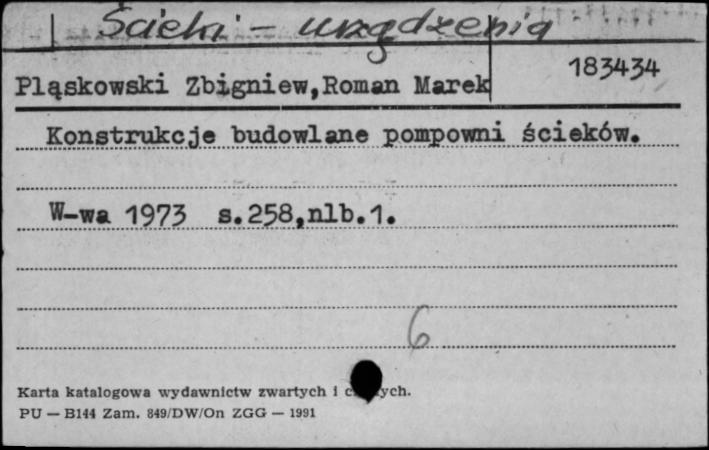 Ścieki - urządzenia
183434
Pląskowski Zbigniew,Roman Marek
Konstrukcje budowlane pompowni ścieków.
W-wa 1973 s.258,nlb.1.
6
Karta katalogowa wydawnictw zwartych i
PU — B144 Zam. 849/DW/On ZGG — 1991